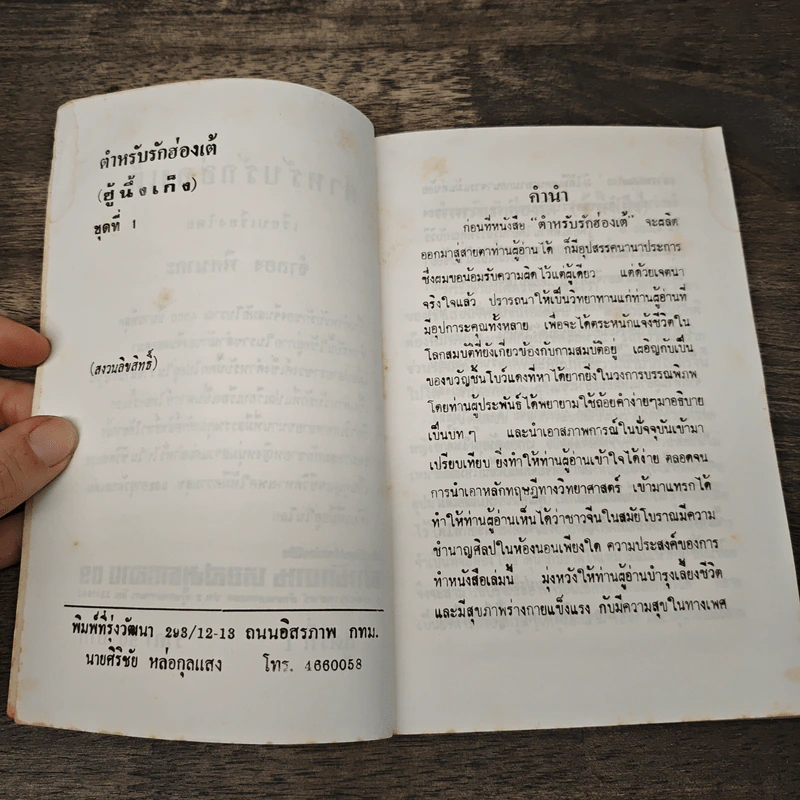 ตำหรับรักฮ่องเต้
(ยู้นึ้งเก็ง)
ชุดที่ 1
(สงวนลิขสิทธิ์)
พิมพ์ที่รุ่งวัฒนา 293/12-13 ถนนอิสรภาพ กทม.
นายศิริชัย หล่อกุลแสง โทร. 4660058
คำนำ
ก่อนที่หนังสือ "ตำหรับรักฮ่องเต้" จะผลิต
ออกมาสู่สายตาท่านผู้อ่านได้ ก็มีอุปสรรคนานาประการ
ซึ่งผมขอน้อมรับความผิดไว้แต่ผู้เดียว แต่ด้วยเจตนา
จริงใจแล้ว ปรารถนาให้เป็นวิทยาทานแก่ท่านผู้อ่านที่
มีอุปการะคุณทั้งหลาย เพื่อจะได้ตระหนักแจ้งชีวิตใน
โลกสมบัติที่ยังเกี่ยวข้องกับกามสมบัติอยู่ เผอิญกับเป็น
ของขวัญชั้นโบว์แดงที่หาได้ยากยิ่งในวงการบรรณพิภพ
โดยท่านผู้ประพันธ์ได้พยายามใช้ถ้อยคำง่ายๆมาอธิบาย
เป็นบทๆ และนำเอาสภาพการณ์ในปัจจุบันเข้ามา
เปรียบเทียบ ยิ่งทำให้ท่านผู้อ่านเข้าใจได้ง่าย ตลอดจน
การนำเอาหลักทฤษฎีทางวิทยาศาสตร์ เข้ามาแทรกได้
ทำให้ท่านผู้อ่านเห็นได้ว่าชาวจีนในสมัยโบราณมีความ
ชำนาญศิลปในห้องนอนเพียงใด ความประสงค์ของการ
ทำหนังสือเล่มนี้ มุ่งหวังให้ท่านผู้อ่านบำรุงเลี้ยงชีวิต
และมีสุขภาพร่างกายแข็งแรง กับมีความสุขในทางเพศ